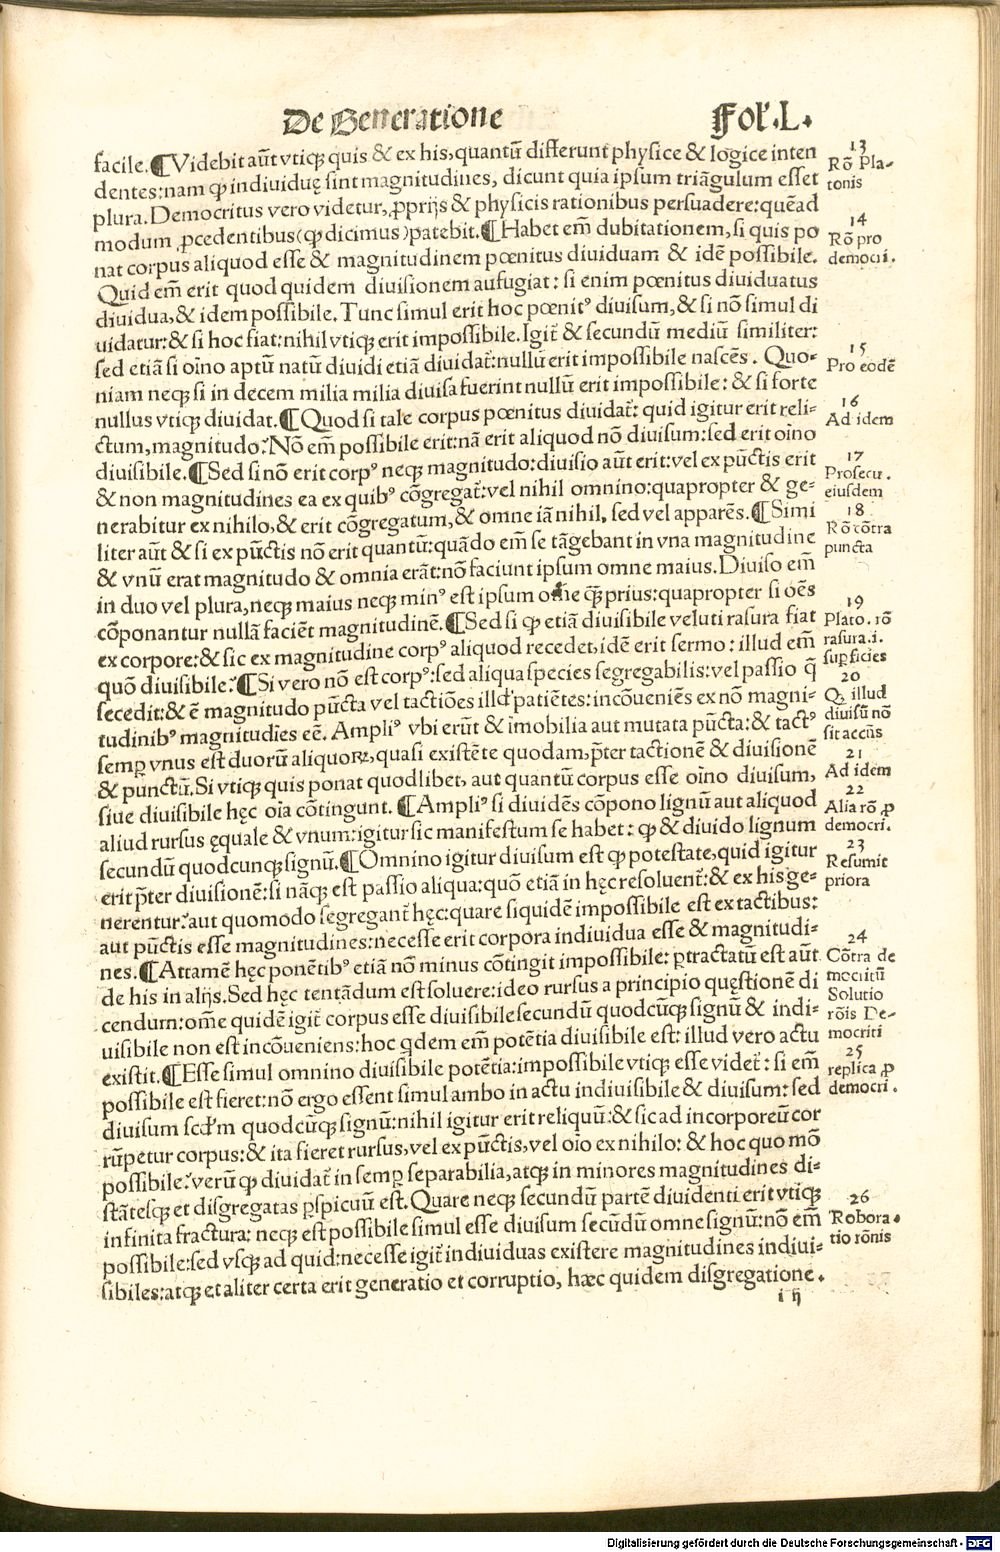 De Generatione
Fol̕.L.
facile.¶Videbit aūt vtiqꝫ quis & ex his,quantū differunt physice & logice inten
dentes:nam ꝙ indiuiduę sint magnitudines, dicunt quia ipsum triāgulum esset
plura.Democritus vero videtur, ꝓprijs & physicis rationibus persuadere:quēad
modum ꝓcedentibus(ꝙ dicimus)patebit.¶Habet em̄ dubitationem,si quis po
nat corpus aliquod esse & magnitudinem pœnitus diuiduam & idē possibile.
Quid em̄ erit quod quidem diuisionem aufugiat: si enim pœnitus diuiduatus
diuidua,& idem possibile. Tunc simul erit hoc pœnitꝰ diuisum,& si nō simul di
uidatur:& si hoc fiat:nihil vtiqꝫ erit impossibile.Igit̄ & secundū mediū similiter:
sed etiā si oīno aptū natū diuidi etiā diuidat̄:nullū erit impossibile nascēs. Quo-
niam neqꝫ si in decem milia milia diuisa fuerint nullū erit impossibile: & si forte
nullus vtiqꝫ diuidat.¶Quod si tale corpus pœnitus diuidat̄: quid igitur erit reli-
ctum,magnitudo?Nō em̄ possibile erit:nā erit aliquod nō diuisum:sed erit oīno
diuisibile.¶Sed si nō erit corpꝰ neqꝫ magnitudo:diuisio aūt erit:vel ex pūctis erit
& non magnitudines ea ex quibꝰ cōgregat̄:vel nihil omnino:quapropter & ge-
nerabitur ex nihilo,& erit cōgregatum,& omne iā nihil, sed vel apparēs.¶Simi
liter aūt & si ex pūctis nō erit quantū:quādo em̄ se tāgebant in vna magnitudine
& vnū erat magnitudo & omnia erāt:nō faciunt ipsum omne maius.Diuiso em̄
in duo vel plura,neqꝫ maius neqꝫ minꝰ est ipsum omne ꝙ̄ prius:quapropter si oēs
cōponantur nullā faciēt magnitudinē.¶Sed si ꝙ etiā diuisibile veluti rasura fiat
ex corpore:& sic ex magnitudine corpꝰ aliquod recedet,idē erit sermo: illud em̄
quō diuisibile?¶Si vero nō est corpꝰ:sed aliqua species segregabilis:vel passio q̄
secedit:& ē magnitudo pūcta vel tactiōes illd̕ patiētes:incōueniēs ex nō magni-
tudinibꝰ magnitudīes eē. Ampliꝰ vbi erūt & imobilia aut mutata pūcta:& tactꝰ
semꝑ vnus est duorū aliquoꝝ,quasi existēte quodam,p̄ter tactionē & diuisionē
& punctū.Si vtiqꝫ quis ponat quodlibet, aut quantū corpus esse oīno diuisum,
siue diuisibile hęc oīa cōtingunt. ¶Ampliꝰ si diuidēs cōpono lignū aut aliquod
aliud rursus ęquale & vnum:igitur sic manifestum se habet: ꝙ & diuido lignum
secundū quodcunqꝫ signū.¶Omnino igitur diuisum est ꝙ potestate,quid igitur
erit p̄ter diuisionē:si nāqꝫ est passio aliqua:quō etiā in hęc resoluent̄:& ex his ge-
nerentur?aut quomodo segregant̄ hęc:quare siquidē impossibile est ex tactibus:
aut pūctis esse magnitudines:necesse erit corpora indiuidua esse & magnitudi-
nes.¶Attamē hęc ponētibꝰ etiā nō minus cōtingit impossibile: ꝑtractatū est aūt
de his in alijs.Sed hęc tentādum est soluere:ideo rursus a principio quęstionē di
cendum:om̄e quidē igit̄ corpus esse diuisibile secundū quodcūqꝫ signū & indi-
uisibile non est incōueniens:hoc qdem em̄ potētia diuisibile est: illud vero actu
existit.¶Esse simul omnino diuisibile potētia:impossibile vtiqꝫ esse videt̄: si em̄
possibile est fieret:nō ergo essent simul ambo in actu indiuisibile & diuisum: sed
diuisum scd̕m quodcūqꝫ signū:nihil igitur erit reliquū:& sic ad incorporeū cor
rūpetur corpus:& ita fieret rursus,vel ex pūctis,vel oīo ex nihilo: & hoc quo mō
possibile?verū ꝙ diuidat̄ in semꝑ separabilia,atqꝫ in minores magnitudines di-
stātesqꝫ et disgregatas ꝑspicuū est.Quare neqꝫ secundū partē diuidenti erit vtiqꝫ
infinita fractura: neqꝫ est possibile simul esse diuisum secūdū omne signū:nō em̄
possibile:sed vsqꝫ ad quid:necesse igit̄ indiuiduas existere magnitudines indiui-
sibiles:atqꝫ et aliter certa erit generatio et corruptio, hæc quidem disgregatione.
i ij
13
Rō Pla-
tonis
14
Rō pro
democri.
15
Pro eodē
16
Ad idem
17
Prosecu.
eiusdem
18
Rō cōtra
puncta
19
Plato. rō
rasura.i.
supficies
20
Qꝙ illud
diuisū nō
sit accn̄s
21
Ad idem
22
Alia rō ꝓ
democri.
23
Resumit
priora
24
Cōtra de
mocritū
Solutio
rōis De-
mocriti
25
replica ꝓ
democri.
26
Robora-
tio rōnis
Digitalisierung gefördert durch die Deutsche Forschungsgemeinschaft - DFG